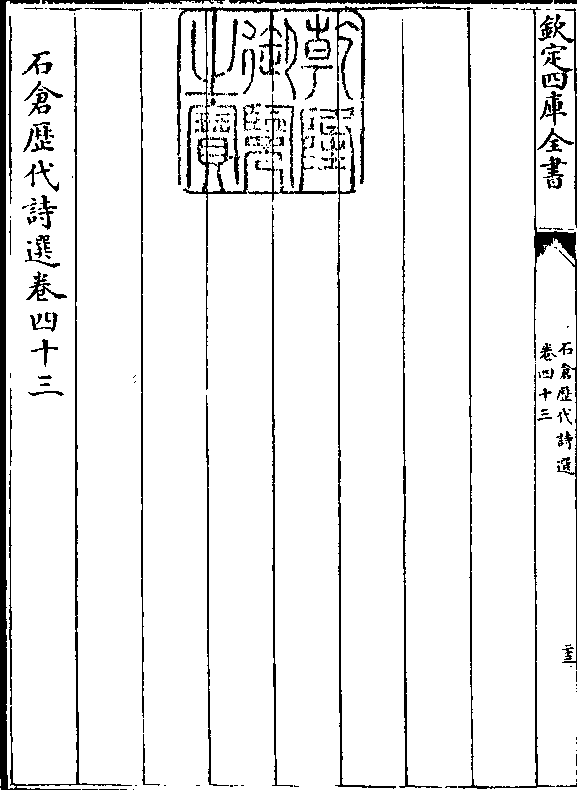 欽定四庫全書
石倉歷代詩選
卷四十三
乾隆
御覽
之寶
石倉歷代詩選卷四十三